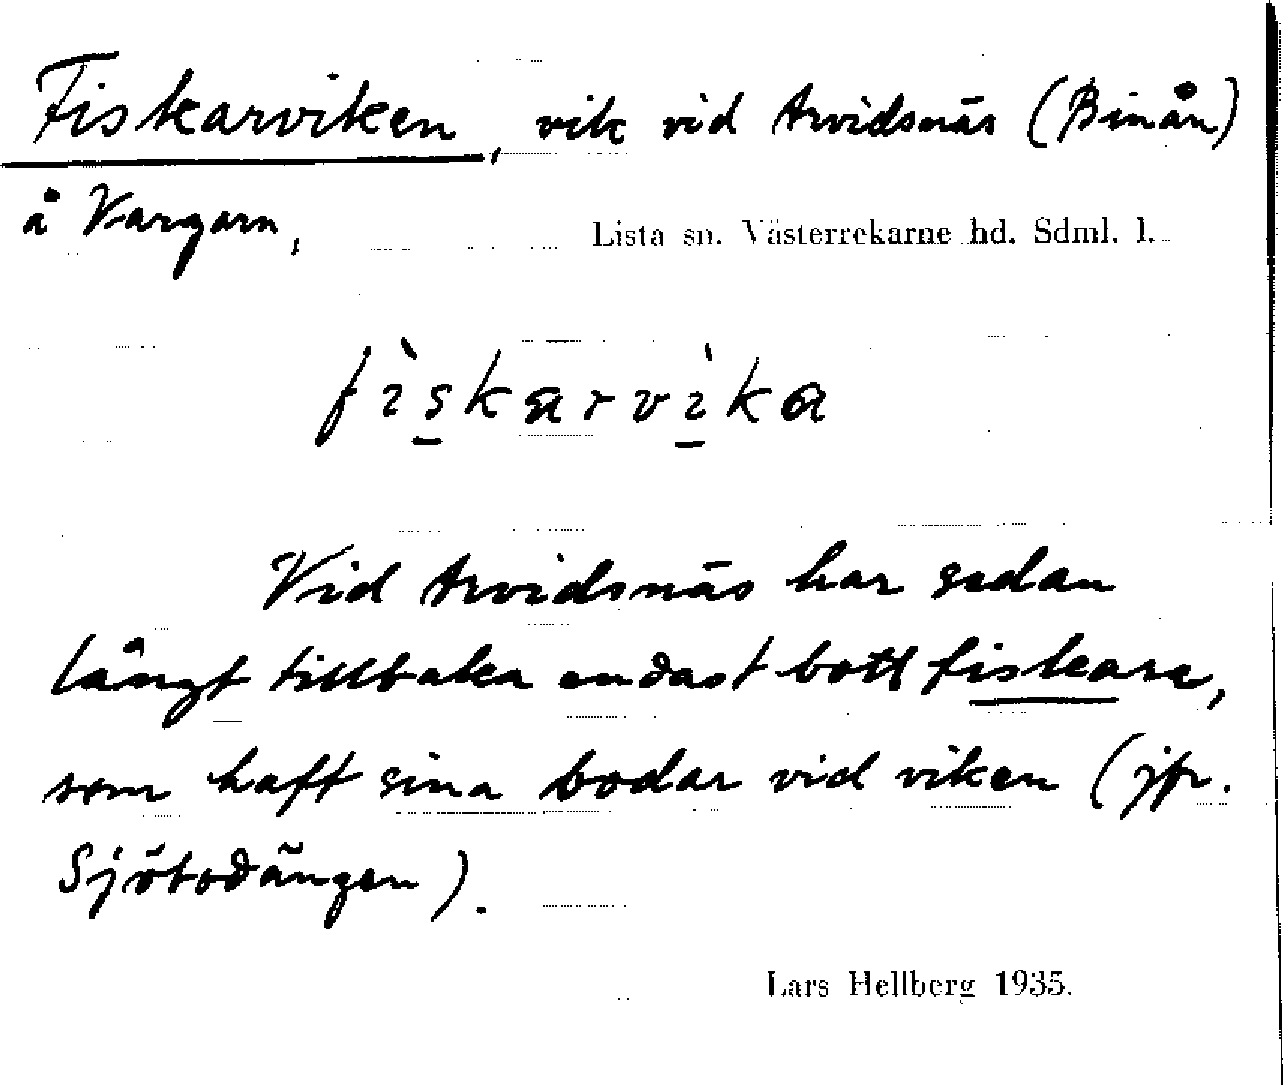 Fiskarviken, vik vid Arvidsnäs (Binån)
å Vargarn,
Lista sn. Västerrekarne hd. Sdml. l.
fìskarvìka
Vid Arvidsnäs har sedan
långt tillbaka endast bott fiskare,
som haft sina bodar vid viken (jfr.
Sjöbodängen).
Lars Hellberg 1935.